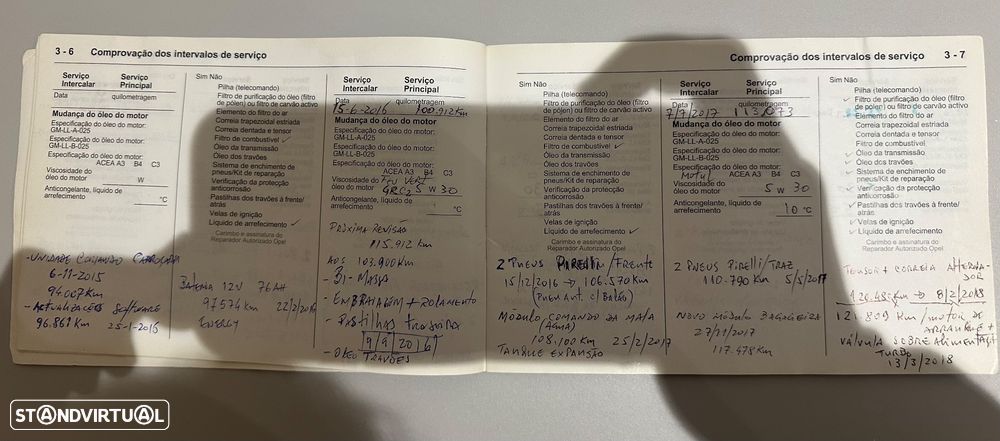 3 - 6 Comprovação dos intervalos de serviço
Serviço Intercalar
Serviço Principal
Data quilometragem
Mudança do óleo do motor
Especificação do óleo do motor:
GM-LL-A-025
Especificação do óleo do motor:
GM-LL-B-025
Especificação do óleo do motor:
ACEA A3 B4 C3
Viscosidade do óleo do motor W
Anticongelante, líquido de arrefecimento °C
- UNIDADE COMANDO
6-11-2015
94007 Km
- ACTUALIZAÇÕES SOFTWARE
96.861 Km 25-1-2016
Sim Não
Pilha (telecomando)
Filtro de purificação do óleo (filtro
de pólen) ou filtro de carvão activo
Elemento do filtro do ar
Correia trapezoidal estriada
Correia dentada e tensor
Filtro de combustível ✓
Óleo da transmissão
Óleo dos travões
Sistema de enchimento de
pneus/Kit de reparação
Verificação da protecção
anticorrosão
Pastilhas dos travões à frente/
atrás
Velas de ignição
Líquido de arrefecimento ✓
Carimbo e assinatura do
Reparador Autorizado Opel
BATERIA 12V 76AH
97574 Km 22/2/2016
ENERGY
Serviço Intercalar
Serviço Principal
Data quilometragem
15-6-2016 100.912 Km
Mudança do óleo do motor
Especificação do óleo do motor:
GM-LL-A-025
Especificação do óleo do motor:
GM-LL-B-025
Especificação do óleo do motor:
ACEA A3 B4 C3
Viscosidade do
óleo do motor 5 W 30
Anticongelante, líquido de
arrefecimento °C
PRÓXIMA REVISÃO
115.912 Km
AOS 103.900 Km
BI-MASSA
- EMBRAIAGEM + ROLAMENTO
- PASTILHAS TRASEIRA
9 9 2016
- OLEO TRAVÕES
Comprovação dos intervalos de serviço 3 - 7
Sim Não
Pilha (telecomando)
Filtro de purificação do óleo (filtro
de pólen) ou filtro de carvão activo
Elemento do filtro do ar
Correia trapezoidal estriada
Correia dentada e tensor
Filtro de combustível ✓
Óleo da transmissão
Óleo dos travões
Sistema de enchimento de
pneus/Kit de reparação
Verificação da protecção
anticorrosão
Pastilhas dos travões à frente/
atrás
Velas de ignição
Líquido de arrefecimento ✓
Carimbo e assinatura do
Reparador Autorizado Opel
2 PNEUS PIRELLI/FRENTE
15/12/2016 → 106.570 Km
MÓDULO COMANDO DA MALA
(AGUA)
108.100 Km 25/2/2017
TANQUE EXPANSÃO
Serviço Intercalar
Serviço Principal
Data quilometragem
7/7/2017 113.073
Mudança do óleo do motor
Especificação do óleo do motor:
GM-LL-A-025
Especificação do óleo do motor:
GM-LL-B-025
Especificação do óleo do motor:
Motul ACEA A3 B4 C3
Viscosidade do
óleo do motor 5 W 30
Anticongelante, líquido de
arrefecimento 10 °C
2 PNEUS PIRELLI/TRAZ
110.790 Km 5/5/2017
NOVO MÓDULO BAGAGEIRA
27/11/2017
117.478 Km
Sim Não
Pilha (telecomando)
✓ Filtro de purificação do óleo (filtro
de pólen) ou filtro de carvão activo
✓ Elemento do filtro do ar
Correia trapezoidal estriada
Correia dentada e tensor
✓ Filtro de combustível
✓ Óleo da transmissão
✓ Óleo dos travões
✓ Sistema de enchimento de
pneus/Kit de reparação
✓ Verificação da protecção
anticorrosão
✓ Pastilhas dos travões à frente/
atrás
✓ Velas de ignição
✓ Líquido de arrefecimento ✓
Carimbo e assinatura do
Reparador Autorizado Opel
TENSOR + CORREIA ALTERNADOR
→ 8/2/2018
121.809 Km / MOTOR DE
ARRANQUE +
VÁLVULA SOBREALIMENTAÇÃO
TURBO
13/3/2018
STANDVIRTUAL